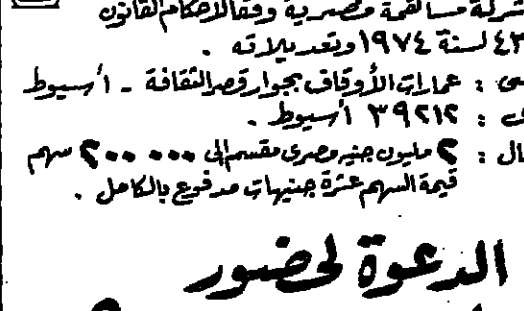 شركة مساهمة مصرية وفقا لأحكام القانون
٤٣ لسنة ١٩٧٤ وتعديلاته .
: عمارات الأوقاف بجوار قصر الثقافة - أسيوط
: ٣٩٢١٢ أسيوط .
ال : ٢ مليون جنيه مصرى مقسم إلى ٢٠٠٠٠٠ سهم
قيمة السهم عشرة جنيهات مدفوع بالكامل .
الدعوة لحضور